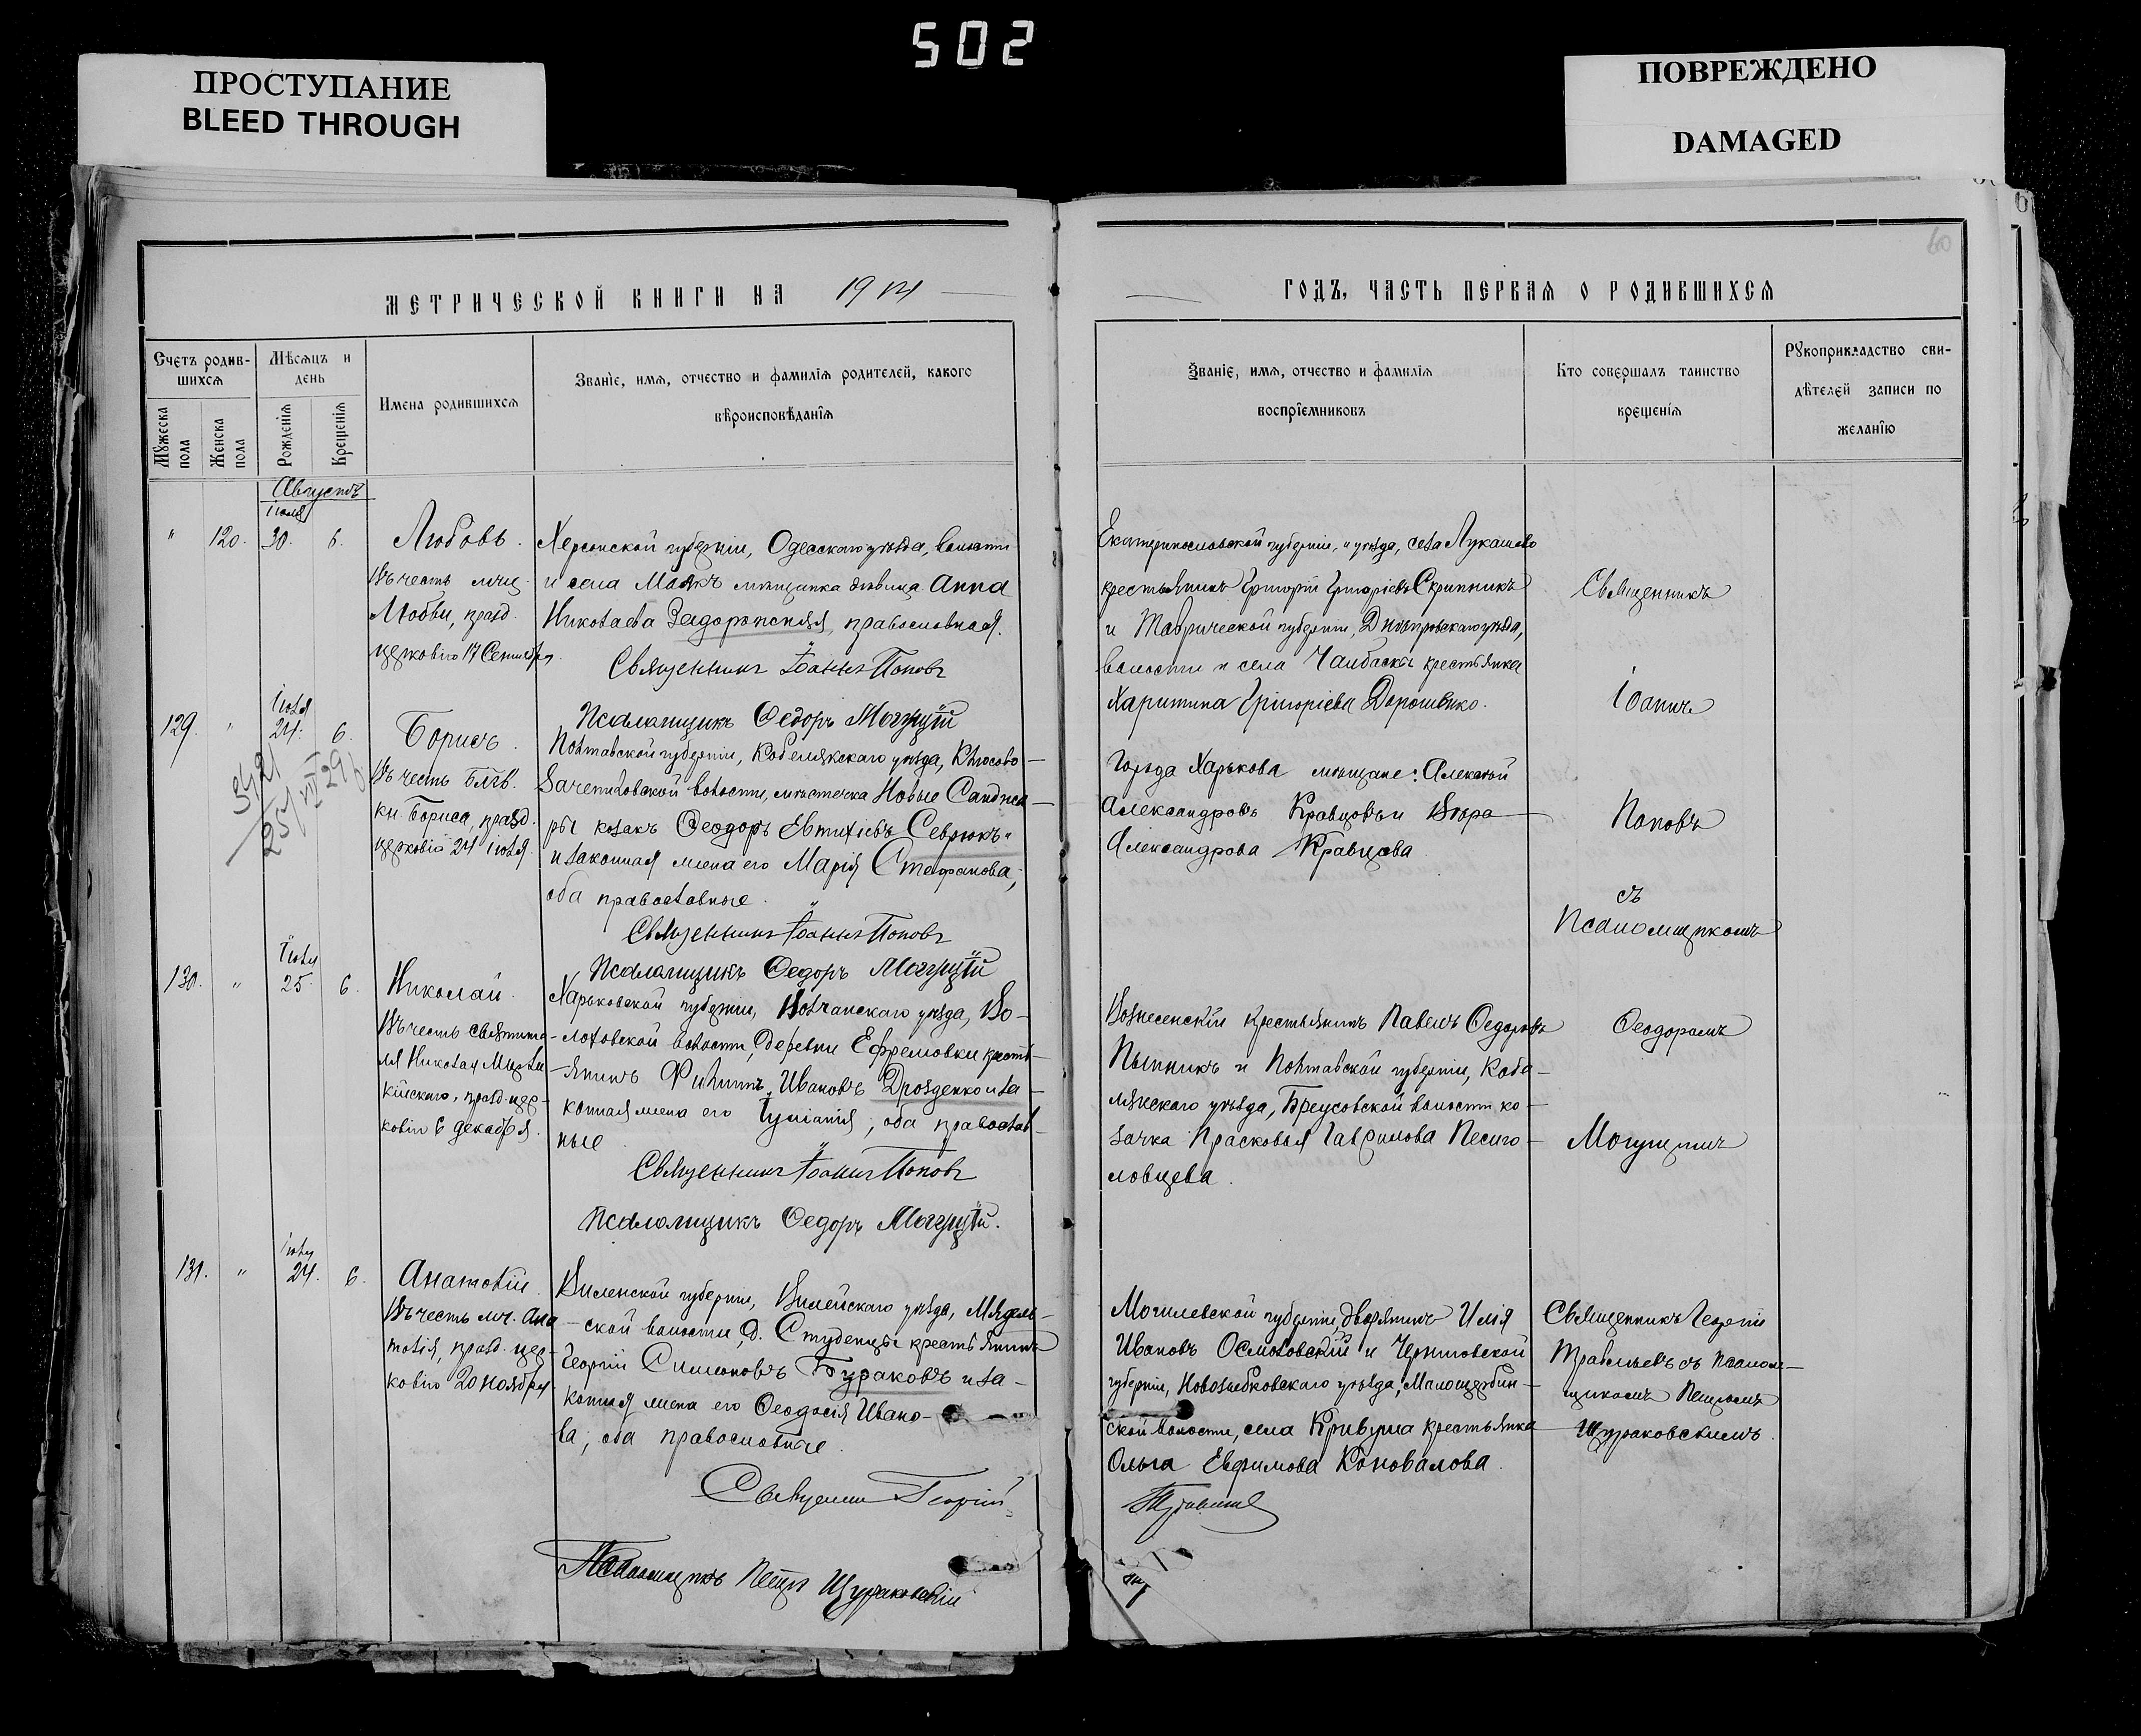 502
ПРОСТУПАНИЕ
BLEED THROUGH
ПОВРЕЖДЕНО
DAMAGED
60
МЕТРИЧЕСКОЙ КНИГИ НА 1914
ГОДЪ, ЧАСТЬ ПЕРВАЯ О РОДИВШИХСЯ
Счетъ родив-
шихся
Мѣсяцъ и
день
Мужеска
пола
Женска
пола
Рожденія
Крещенія
Имена родившихся
Званіе, имя, отчество и фамилія родителей, какого
вѣроисповѣданія
Званіе, имя, отчество и фамилія
воспріемниковъ
Кто совершалъ таинство
крещенія
Рукоприкладство сви-
дѣтелей записи по
желанію
Августъ
Іюля
" 120. 30. 6.
Любовь.
Въ честь мчц.
Любви, празд.
церковію 17 Сентября
Херсонской губерніи, Одесскаго уѣзда, волости
и села Маякъ мѣщанка дѣвица Анна
Николаева Задорожняя, православная.
Священникъ Іоаннъ Поповъ
Псаломщикъ Ѳедоръ Могущій
Екатеринославской губерніи, " уѣзда, села Лукашево
крестьянинъ Григорій Григоріевъ Скрипникъ
и Таврической губерніи, Днѣпровскаго уѣзда,
волости и села Чалбасы крестьянка
Харитина Григоріева Дорошенко.
Священникъ
Іоаннъ
Поповъ
съ
Псаломщикомъ
Ѳеодоромъ
Могущимъ
Іюля
129. " 24. 6.
Борисъ.
Въ честь Блгв.
кн. Бориса, празд.
церковію 24 іюля.
Полтавской губерніи, Кобелякскаго уѣзда, Клюсово-
Зачепиловской волости, мѣстечка Новые Санджа-
ры козакъ Ѳеодоръ Евтихіевъ Севрюкъ
и законная жена его Марія Стефанова,
оба православные.
Священникъ Іоаннъ Поповъ
Псаломщикъ Ѳедоръ Могущій
Города Харькова мѣщане: Алексѣй
Александровъ Кравцовъ и Вѣра
Александрова Кравцова
Іюля
130. " 25. 6.
Николай.
Въ честь святите-
ля Николая Мирли
кійскаго, празд. цер-
ковію 6 декабря.
Харьковской губерніи, Волчанскаго уѣзда, Во-
лоховской волости, деревни Ефремовки кресть-
янинъ Филиппъ Ивановъ Дрозденко и за-
конная жена его Іуліанія, оба православ-
ные
Священникъ Іоаннъ Поповъ
Псаломщикъ Ѳедоръ Могущій.
Вознесенскій крестьянинъ Павелъ Ѳедоровъ
Пыпникъ и Полтавской губерніи, Кобе-
лякскаго уѣзда, Бреусовской волости ко-
зачка Прасковья Гаврилова Песиго-
ловцева.
Іюля
131. " 24. 6.
Анатолій.
Въ честь мч. Ана
толія, празд. цер-
ковію 20 ноября
Виленской губерніи, Вилейскаго уѣзда, Мядель-
ской волости, д. Студенцы крестьянинъ
Георгій Симоновъ Бураковъ и за-
конная жена его Ѳеодосія Ивано-
ва, оба православные.
Священникъ Георгій
Псаломщикъ Петръ Щураковскій
Могилевской губерніи дворянинъ Илія
Ивановъ Осмоловскій и Черниговской
губерніи, Новозыбковскаго уѣзда, Малощербин-
ской волости, села Кривуша крестьянка
Ольга Евфимова Коновалова.
Священникъ Георгій
Травлѣевъ съ псалом-
щикомъ Петромъ
Щураковскимъ.